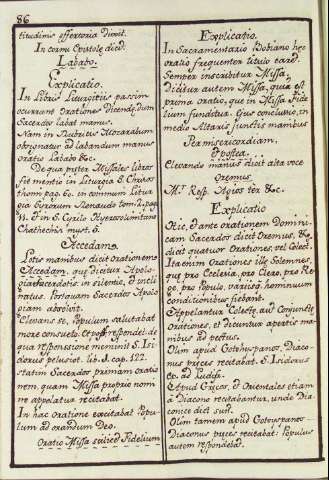 86
titudinis offertoria dimit.
In cornu Epistolę dicid.
Labâbo.
Explicatio.
In Libris Liturgicis passim
ocurrunt Orationes Dicendę, dum
Sacerdos labat manus.
Nam in Rubricis Mozarabum
obsignatur ad labandum manus
oratio Labâbo &c.
De qua pręter Missales libros
fit mentio in Liturgia S. Chrisos
thom pag. 60. in communi Litur
gia Syrorum Renaudo tom. 2. pag.
11. & in S. Cyrilo Hyerosolimitano
Chathechis must. 6.
Accedam.
Lotis manibus dicit orationem
Accedam, quę dicitur Apolo-
gia sacerdotis: in silentio, & incli
natus. Postquam Sacerdos Apolo
giam absolvit.
Elevans se, Populum salutabat
more consueto. Et respondet: de
qua responsione meminit S. Isi
dorus pelusiot. lib. 1. cap. 122.
statim Sacerdos primam oratio
nem, quam Missa proprio nomi
ne appelatur recitabat.
In hac Oratione excitabat Popu
lum ad orandum Deo.
Oratio Missa scilicèd Fidelium
Explicatio.
In Sacramentario Bobiano hęc
oratio frequenter titulo cared.
Semper inscribitur Missa.
Dicitur autem Missa, quia est
prima oratio, que in Missa Fide
lium funditur. Ejus conclusio, in
medio Altaris junctis manibus
Per misericordiam.
Postea.
Elevando manus dicit alta voce
Oremus.
Resp. Agios ter &c.
Explicatio
Hic, & ante orationem Domini-
cam Sacerdos dicit Oremus, &
dicid quatuor Orationes, vel Colect.
Itaenim Orationes illę Solemnes,
quę pro Ecclesia, pro Clero, pro Re
ge, pro Populo, variisq. hominum
conditionibus fiebant.
Appelantur Colectę, aud Conjunctę
Orationes, et dicuntur apertis ma-
nibus ad pectus.
Olim apud Gotohispanos, Diaco-
nus pręces recitabat. S. Isidorus
Ec. ad Ludifr.
Apud Gręcos, & Orientales etiam
à Diacono recitabantur, unde Dia
conicę dict sunt.
Olim tamen apud Gotohispanos
Diaconus pręces recitabat: Populus
autem respondebad.